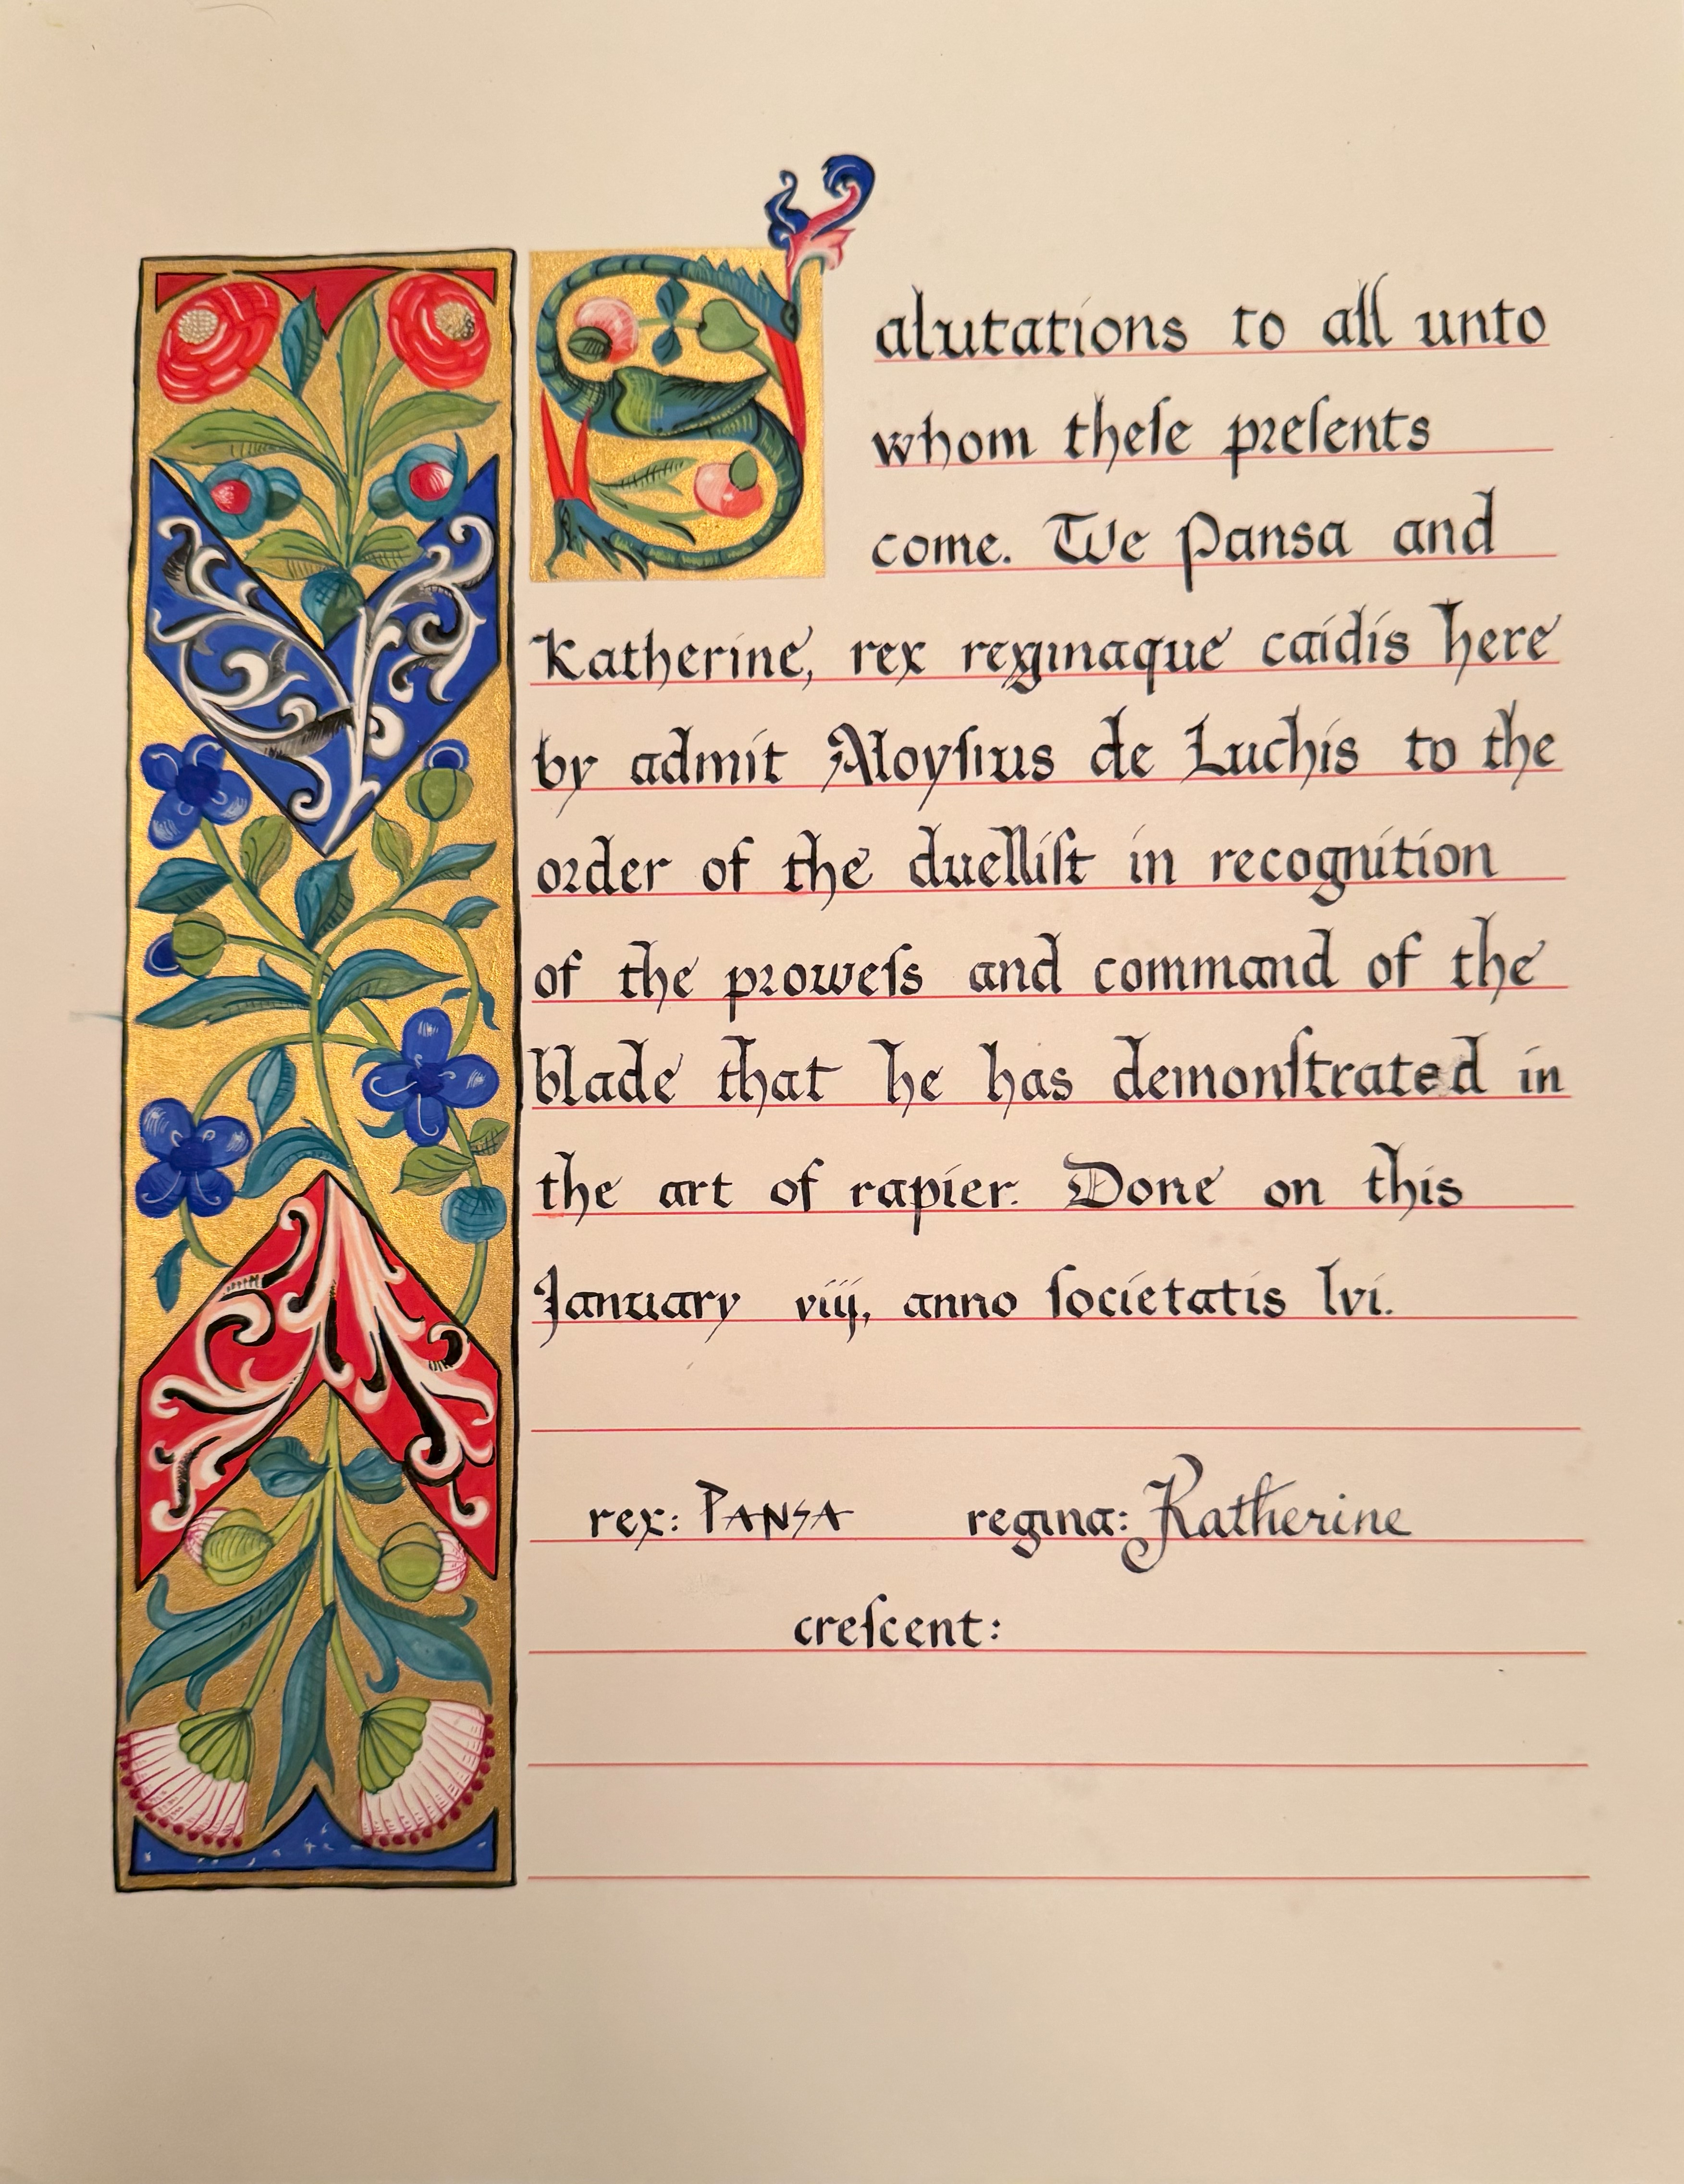 Salutations to all unto
whom theſe preſents
come. We Pansa and
Katherine, rex reginaque caidis here
by admit Aloyſius de Luchis to the
order of the duelliſt in recognition
of the proweſs and command of the
blade that he has demonſtrated in
the art of rapier. Done on this
January viij, anno ſocietatis lvi.
rex: PANSA regina: Katherine
creſcent: